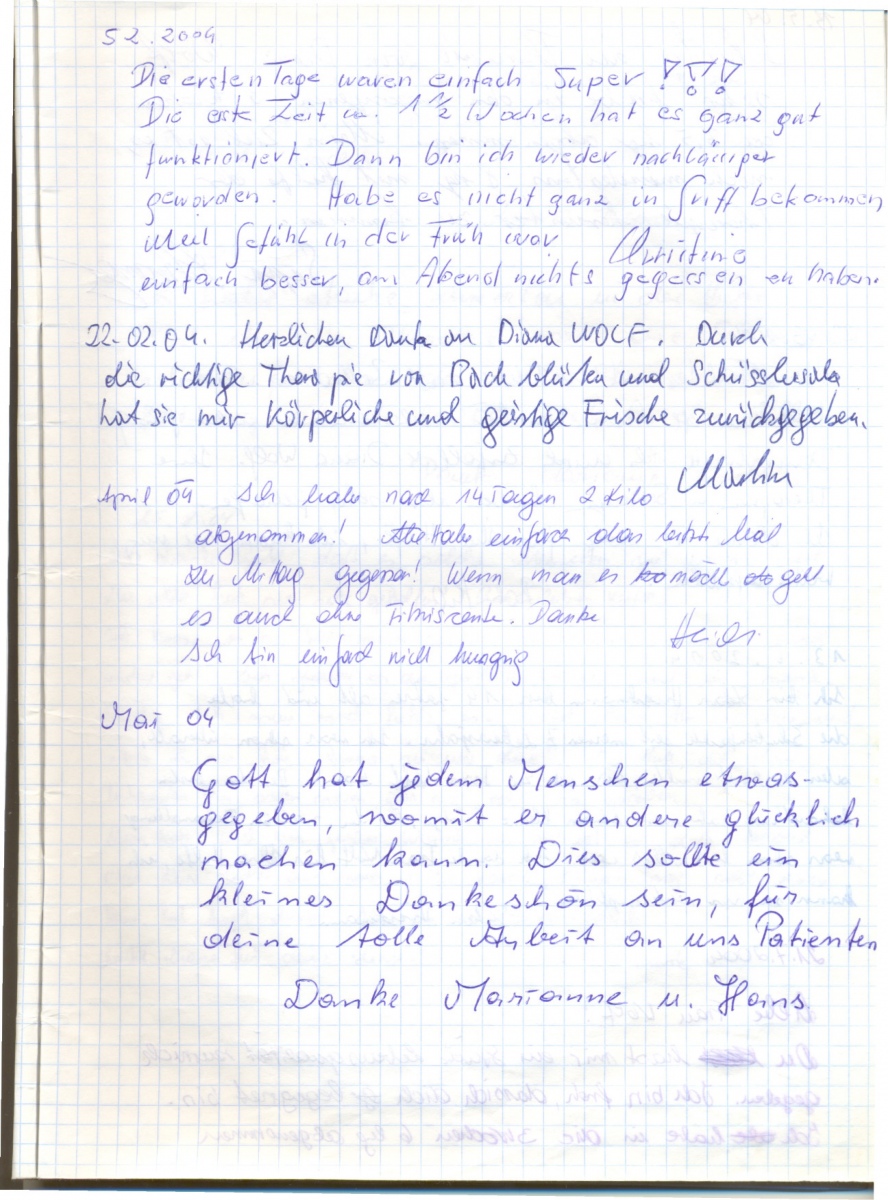 5 2. 2004
Die ersten Tage waren einfach Super !!!
Die erste Zeit ca. 1 1/2 Wochen hat es ganz gut
funktioniert. Dann bin ich wieder nachlässiger
geworden. Habe es nicht ganz in Griff bekommen
Weil Gefühl in der Früh war Christine
einfach besser, am Abend nichts gegessen zu haben.
22.02.04. Herzlichen Dank an Diana WOLF. Durch
die richtige Therapie von Bachblüten und Schüsslersalze
hat sie mir Körperliche und geistige Frische zurückgegeben.
April 04 Ich habe nach 14 Tagen 2 Kilo
abgenommen! Habe einfach das letzte Mal
zu Mittag gegessen! Wenn man es möcht geht
es auch ohne Fitnisscente. Danke
Heidi
Ich bin einfach nicht hungrig
Mai 04
Gott hat jedem Menschen etwas
gegeben, womit er andere glücklich
machen kann. Dies sollte ein
kleines Dankeschön sein, für
deine tolle Arbeit an uns Patienten
Danke Marianne u. Hans